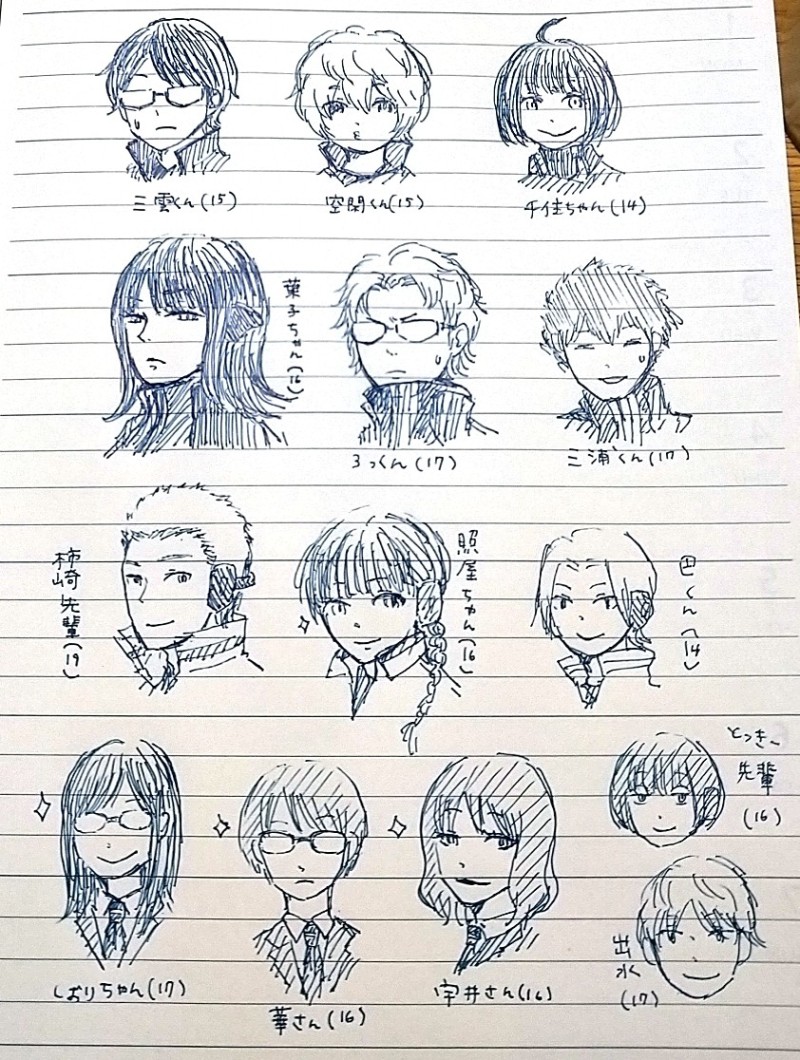 三雲くん(15)
空閑くん(15)
千佳ちゃん(14)
葉子ちゃん(16)
ろっくん(17)
三浦くん(17)
柿崎先輩(19)
照屋ちゃん(16)
巴くん(14)
とっきー
先輩
(16)
しおりちゃん(17)
華さん(16)
宇井さん(16)
出水
(17)